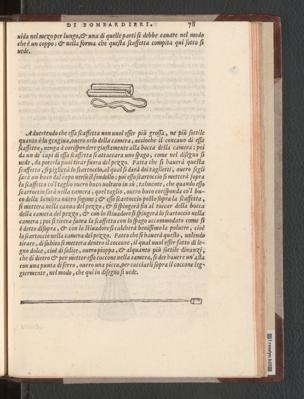 DI BOMBARDIERI. 78
uida nel mezo per lungo, & una di quelle parti si debbe cauare nel modo
che è un coppo; & nella forma che questa scaffetta compita qui sotto si
uede.
Aduertendo che essa scaffetta non uuol esser più grossa, nè più sottile
quanto è la gengiua, ouero orlo della camera, acciohe il concauo di essa
scaffetta, uenga à corrispondere giustamente alla bocca della camera; poi
da un de' capi di essa scaffetta si attaccara uno spago, come nel disegno si
uede, da poterla puoi tirar fuora del pezzo. Fatta che si hauerà questa
scaffetta, si pigliera lo scartoccio, al qual si
la scaffetta co'l taglio ouero buco uoltato in sù, talmente, che quando essa
si metterà nella camera del pezzo, & si spingerà fin al toccar della bocca
della camera del pezzo, & con lo stiuadore si spingerà lo scartoccio nella
camera; poi si tirerà fuora la scaffetta con lo spago accommodato come si
è detto disopra, & con lo stiuadore si calcherà benissimo la poluere, cioè
lo scartoccio nella camera del pezzo. Fatto che si hauerà questo, uolendo
tirare, di subito si metterà dentro il coccone, il qual uuol esser fatto di le-
gno dolce, cioè di salice, ouero pioppa, & alquanto più sottile dinanzi,
che di dietro & per metter esso coccone nella camera, si dee hauere un'asta
con una punta di ferro, ouero una picca, per cacciarli sopra il coccone leg-
giermente, nel modo, che qui in disegno si uede.